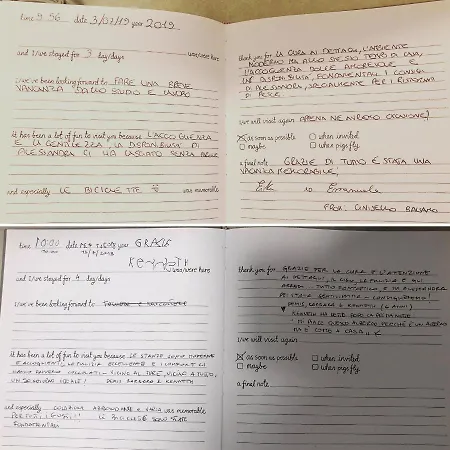 time 9:56 date 3/07/19 year 2019
was/were here
and I/we stayed for 3 day/days
I/we've been looking forward to FARE UNA BREVE
VACANZA DALLO STUDIO E LAVORO
it has been a lot of fun to visit you because L'ACCOGLIENZA
E LA GENTILEZZA, LA DISPONIBILITÀ DI
ALESSANDRA CI HA LASCIATO SENZA PAROLE
and especially LE BICICLETTE was memorable
thank you for LA CURA IN DETTAGLI, L'AMBIENTE
MODERNO MA ALLO STESSO TEMPO DI CASA,
L'ACCOGLIENZA DOLCE AMOREVOLE E
LA DISPONIBILITÀ, FONDAMENTALI I CONSIGLI
DI ALESSANDRA, SPECIALMENTE PER I RISTORANTI
DI PESCE.
I/we will visit again APPENA NE AVREMO OCCASIONE!
as soon as possible when invited
maybe when pigs fly
a final note GRAZIE DI TUTTO È STATA UNA
VACANZA MEMORABILE!
Emanuele
FROM CINISELLO BALSAMO
time 10:00 date year GRAZIE
was/were here
and I/we stayed for 4 day/days
I/we've been looking forward to
it has been a lot of fun to visit you because LE STANZE SONO MODERNE
E ACCOGLIENTI, LA PULIZIA ECCELLENTE E I COMFORT LI
VICINO AL MARE, VICINO A TUTTO,
UN SERVIZIO IDEALE! DENIS BARBARA E KENNETH
and especially COLAZIONE ABBONDANTE E VARIA was memorable
PER TUTTI I GUSTI!! LE BICICLETTE SONO STATE
FONDAMENTALI
thank you for GRAZIE PER LA CURA E L'ATTENZIONE
AI DETTAGLI, IL CIBO, LA PULIZIA E GLI
ARREDI TUTTO FANTASTICO E MALEDETTAMENTE
DENIS, BARBARA E KENNETH (6 ANNI)
KENNETH HA DETTO
"MI PIACE QUESTO ALBERGO PERCHÈ È UN ALBERGO
MA È COME A CASA"
I/we will visit again
as soon as possible when invited
maybe when pigs fly
a final note